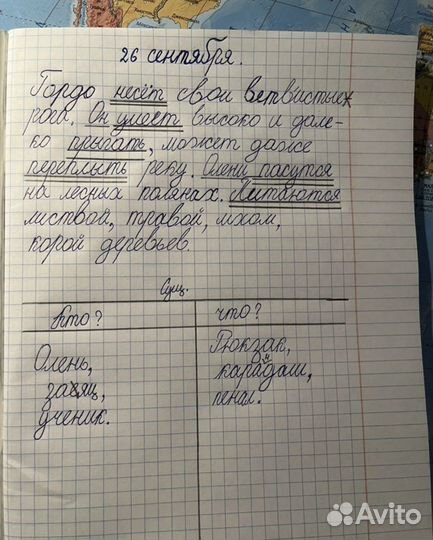 26 сентября.
Гордо несёт свои ветвистые
рога. Он умеет высоко и дале-
ко прыгать, может даже
переплыть реку. Олени пасутся
на лесных полянах. Питаются
листвой, травой, мхом,
корой деревьев.
Сущ.
Кто? что?
Олень, Рюкзак,
заяц, карандаш,
ученик. пенал.
Avito